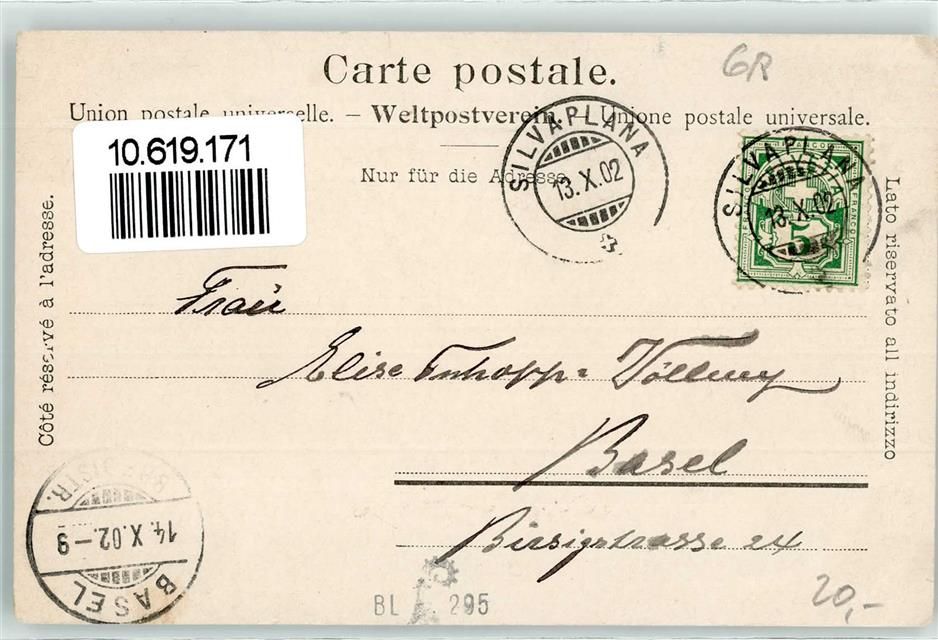 Carte postale.
GR
Union postale universelle. – Weltpostverein. – Unione postale universale.
10.619.171
Nur für die Adresse
SILVAPLANA
13.X.02
SILVAPLANA
13.X.02
5
FRANCO
Côté réservé à l'adresse.
Lato riservato all indirizzo
Frau
Elise Imhoff- Völlmy
Basel
Birsigstrasse 24
BASEL
14.X.02.–9
BL 295
20,-